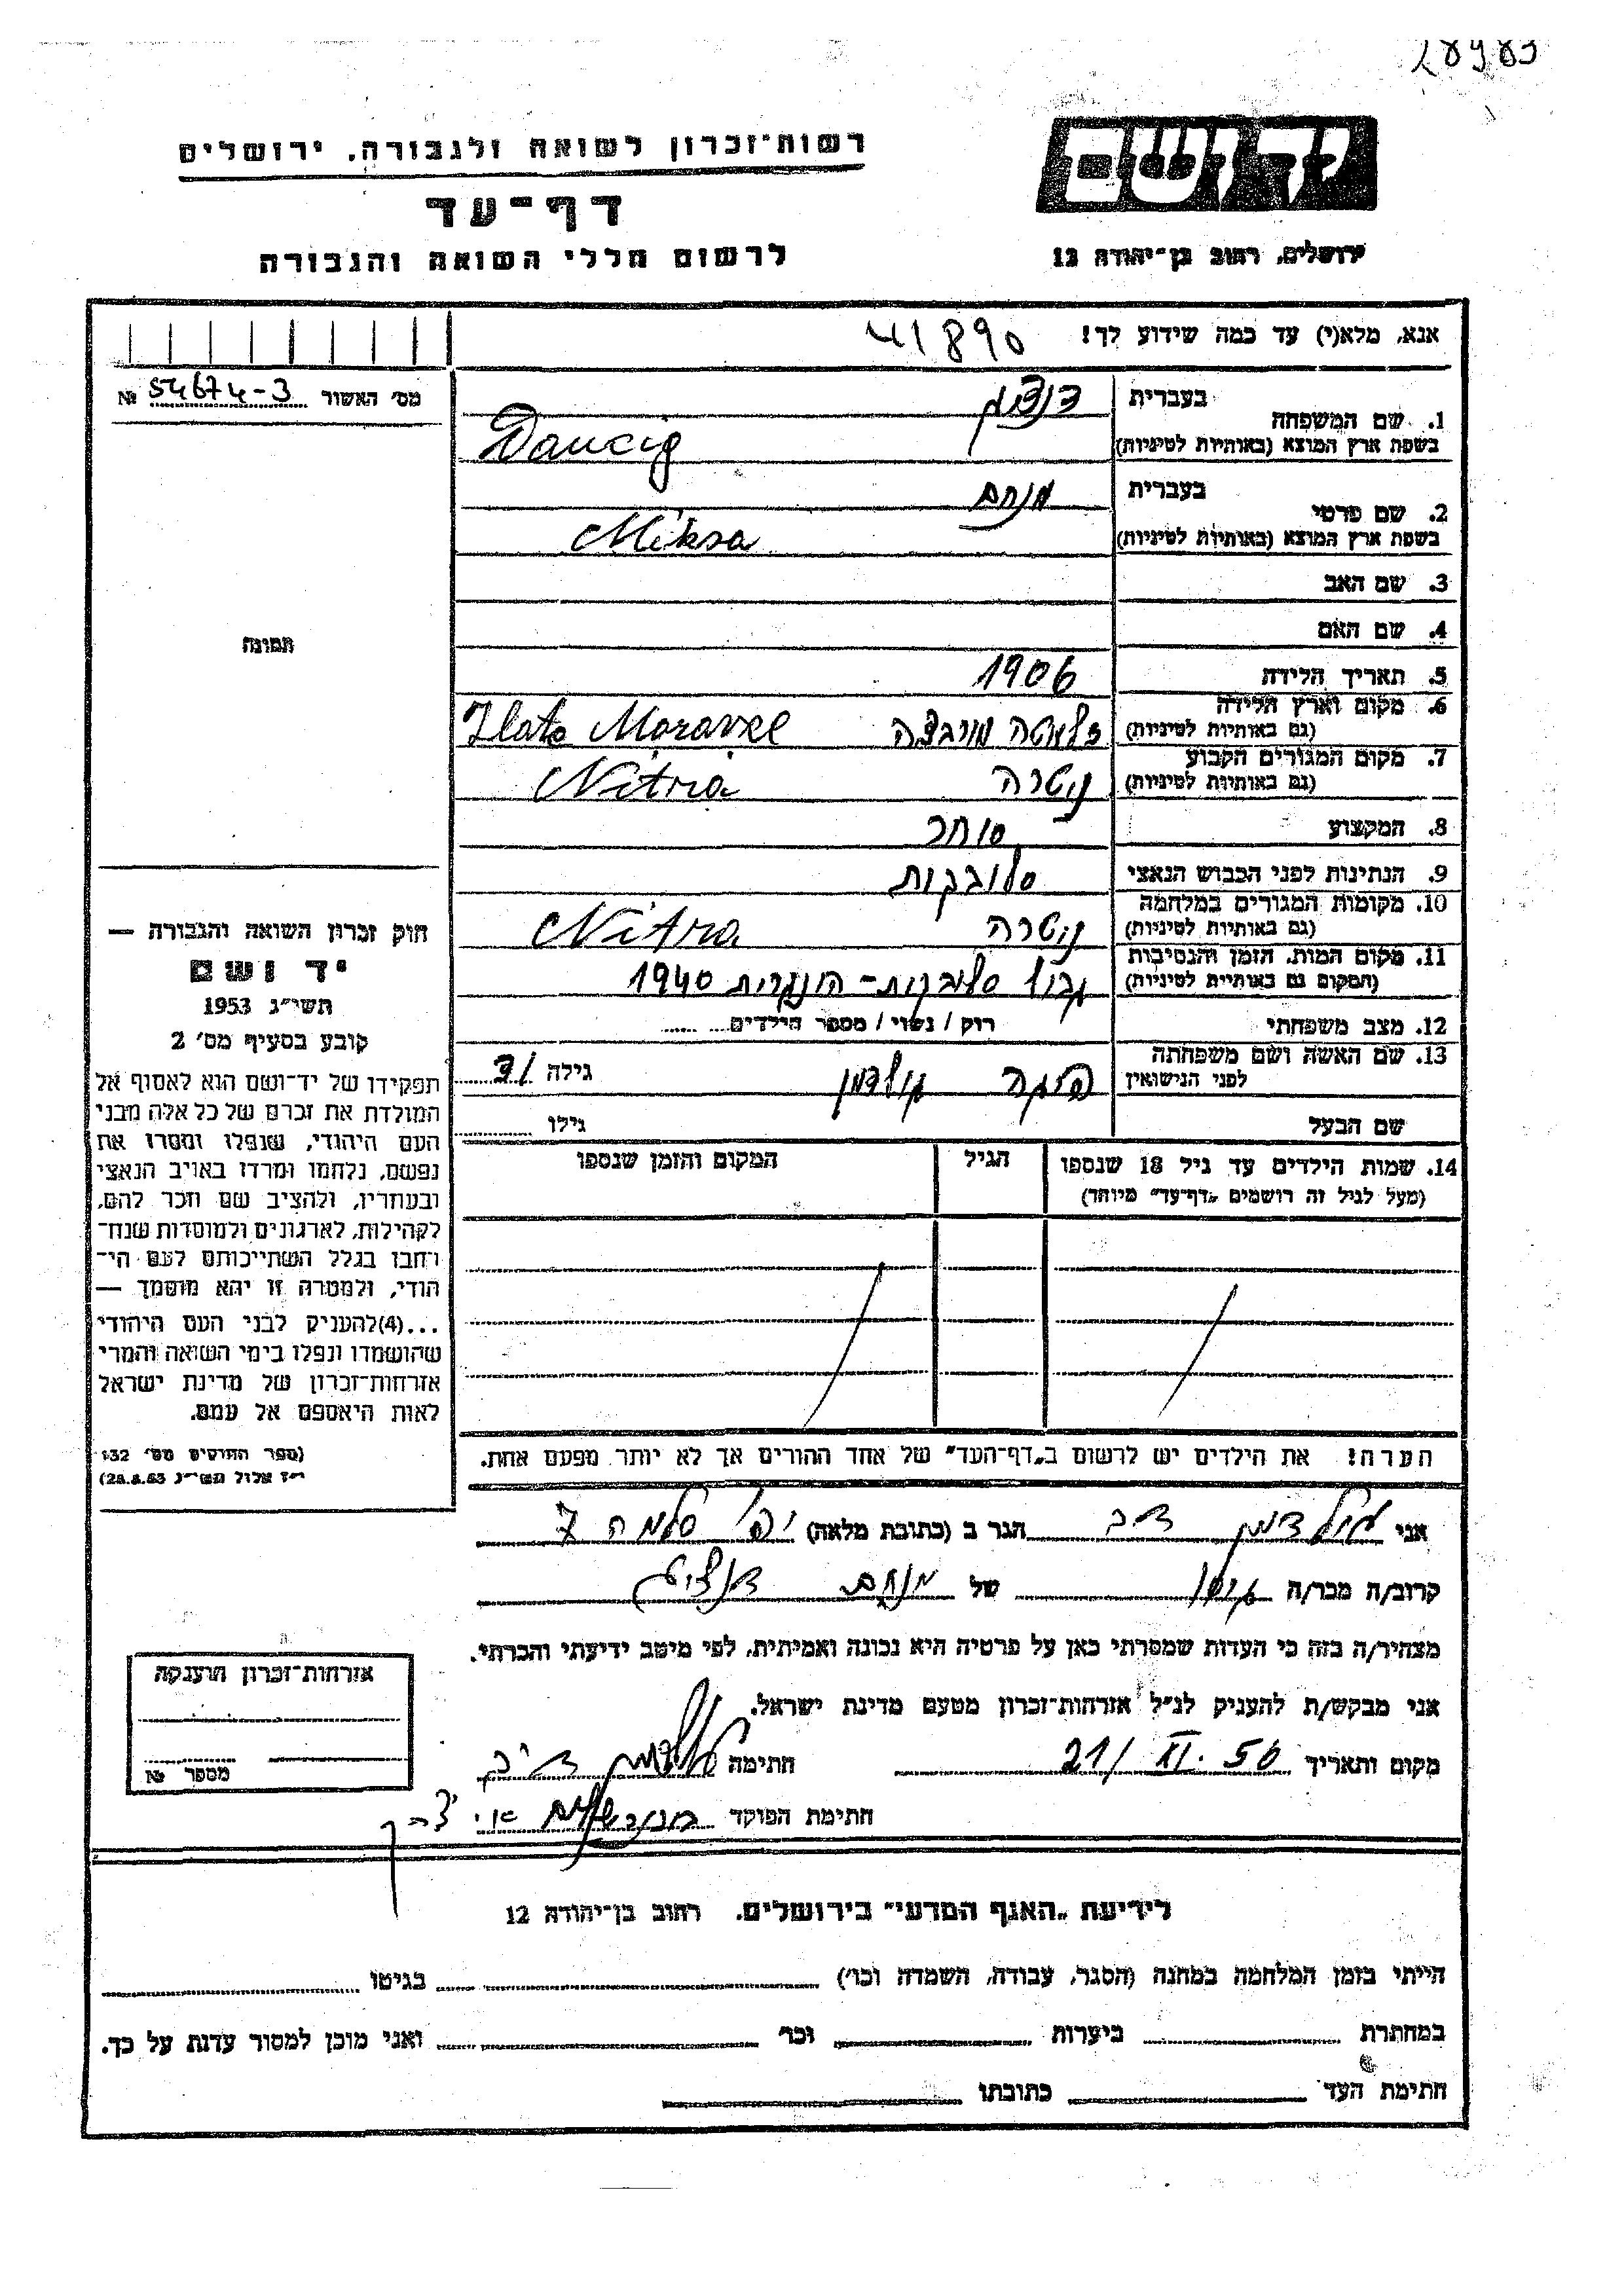 28983
רשות־זכרון לשואה ולגבורה, ירושלים
דף־עד
לרשום חללי השואה והגבורה
יד ושם
ירושלים, רחוב בן־יהודה 12
אנא, מלא(י) עד כמה שידוע לך! 41890
מס׳ האשור 54674-3 №
תמונה
חוק זכרון השואה והגבורה —
יד ושם
תשי״ג 1953
קובע בסעיף מס׳ 2
תפקידו של יד־ושם הוא לאסוף אל
המולדת את זכרם של כל אלה מבני
העם היהודי, שנפלו ומסרו את
נפשם, נלחמו ומרדו באויב הנאצי
ובעוזריו, ולהציב שם וזכר להם,
לקהילות, לארגונים ולמוסדות שנח־
רחבו בגלל השתייכותם לעם הי־
הודי, ולמטרה זו יהא מוסמך —
...(4)להעניק לבני העם היהודי
שהושמדו ונפלו בימי השואה והמרי
אזרחות־זכרון של מדינת ישראל
לאות היאספם אל עמם.
(ספר החוקים מס׳ 132
י״ז אלול תשי״ג 28.8.53)
1. שם המשפחה בעברית דנציג
בשפת ארץ המוצא (באותיות לטיניות) Dancig
2. שם פרטי בעברית מנחם
בשפת ארץ המוצא (באותיות לטיניות) Miksa
3. שם האב
4. שם האם
5. תאריך הלידה 1906
6. מקום וארץ הלידה (גם באותיות לטיניות) זלטה מורבצה Zlate Moravce
7. מקום המגורים הקבוע (גם באותיות לטיניות) ניטרה Nitra
8. המקצוע סוחר
9. הנתינות לפני הכבוש הנאצי סלובקית
10. מקומות המגורים במלחמה (גם באותיות לטיניות) ניטרה Nitra
11. מקום המות, הזמן והנסיבות (המקום גם באותיות לטיניות) גבול סלובקית - הונגרית 1940
12. מצב משפחתי רוק / נשוי / מספר הילדים
13. שם האשה ושם משפחתה לפני הנישואין גולדמן גילה 31
שם הבעל גילו
14. שמות הילדים עד גיל 18 שנספו הגיל המקום והזמן שנספו
(מעל לגיל זה רושמים „דף־עד״ מיוחד)
הערה! את הילדים יש לרשום ב„דף־העד״ של אחד ההורים אך לא יותר מפעם אחת.
אני גולדמן דב הגר ב (כתובת מלאה) יפו סלמה 7
קרוב/ה מכר/ה גיסו של מנחם דנציג
מצהיר/ה בזה כי העדות שמסרתי כאן על פרטיה היא נכונה ואמיתית, לפי מיטב ידיעתי והכרתי.
אני מבקש/ת להעניק לנ״ל אזרחות־זכרון מטעם מדינת ישראל.
מקום ותאריך 21/ XI. 56 חתימה גולדמן דב
חתימת הפוקד
אזרחות־זכרון הוענקה
מספר №
לידיעת „האגף המדעי״ בירושלים, רחוב בן־יהודה 12
הייתי בזמן המלחמה במחנה (הסגר, עבודה, השמדה וכו׳) בגיטו
במחתרת ביערות וכו׳ ואני מוכן למסור עדות על כך.
חתימת העד כתובתו